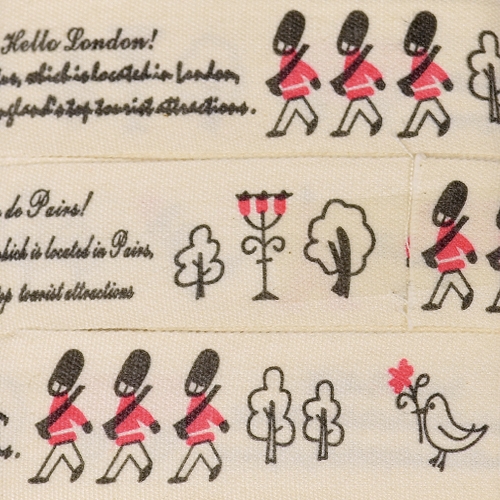 Hello London!
which is located in London,
top tourist attractions.
de Pairs!
which is located in Pairs,
top tourist attractions